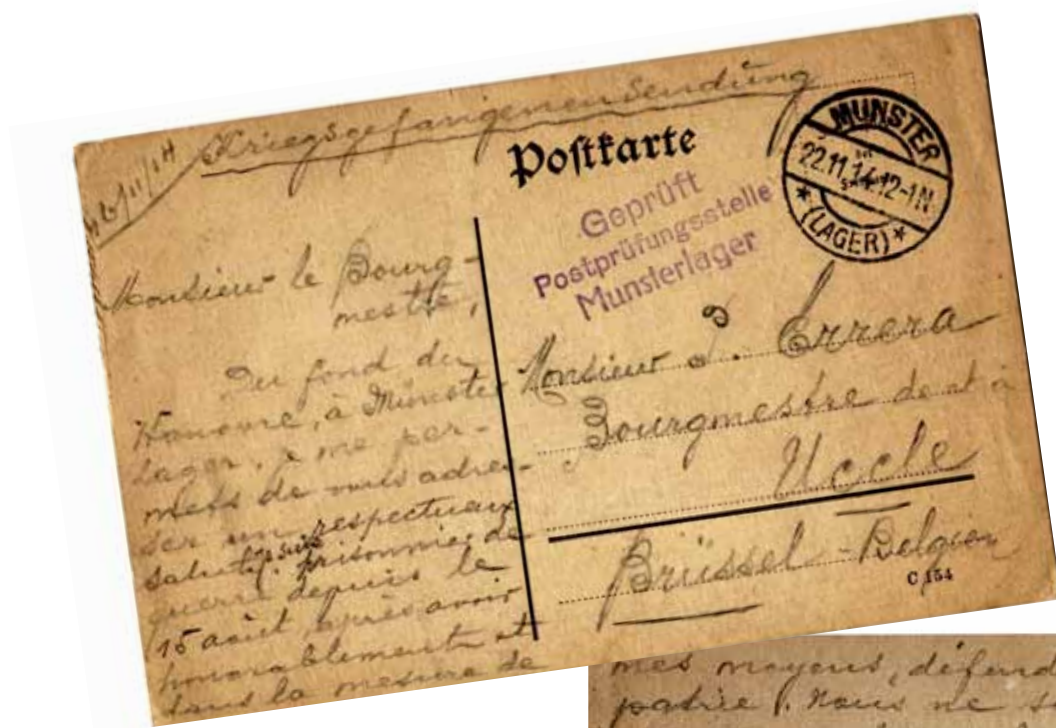 Kriegsgefangenensendung
Postkarte
MUNSTER
22.11.14.12-1N
*(LAGER)*
Geprüft
Postprüfungsstelle
Munsterlager
Monsieur le Bourg-
mestre,
Du fond du
Hanovre, à Münster
Lager, je me per-
mets de vous adres-
ser un respectueux
salut. Je suis prisonnier de
guerre depuis le
15 août, après avoir
honorablement et
dans la mesure de
Monsieur P. Errera
Bourgmestre de et à
Uccle
Brüssel - Belgien
C 154
mes moyens, défend
patrie. Nous ne